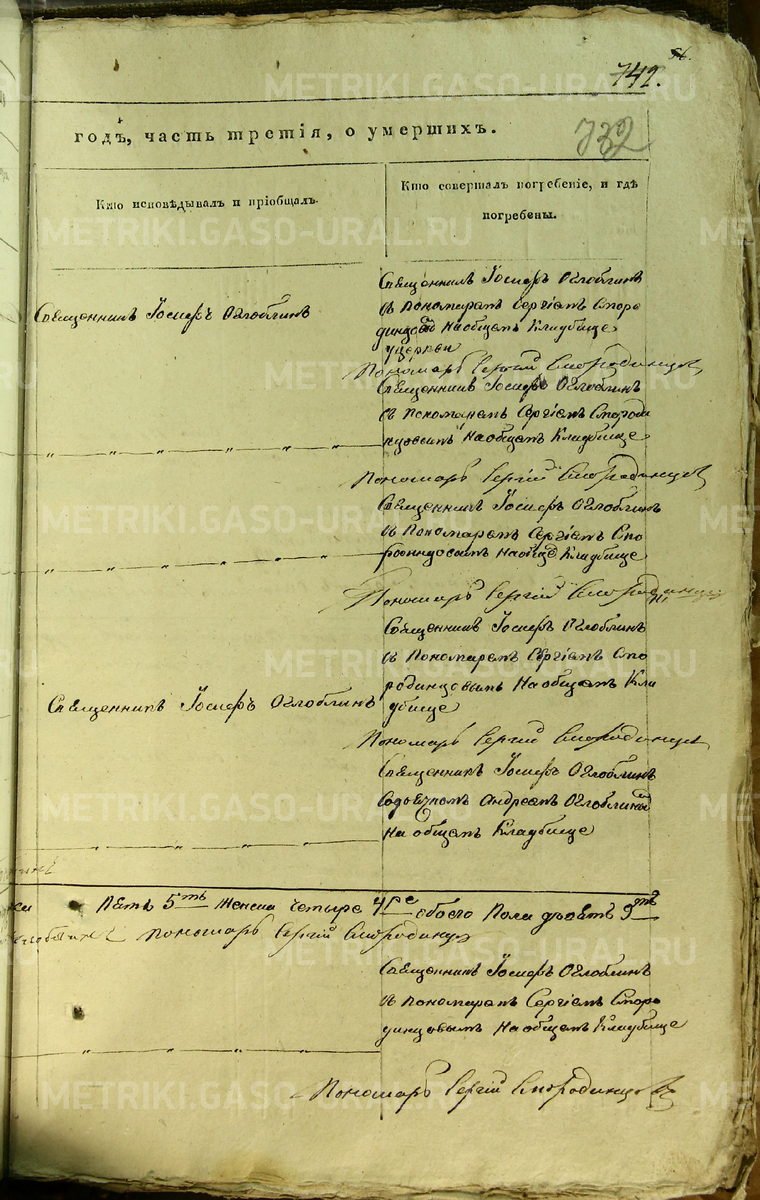 56.
742.
732
годъ, часть третія, о умершихъ.
Кто исповѣдывалъ и пріобщалъ.
Кто совершалъ погребеніе, и гдѣ
погребены.
Священникъ Іосифъ Оглоблинъ
Священникъ Іосифъ Оглоблинъ
съ Пономаремъ Сергіемъ Сморо
динцовымъ на общемъ Кладбище
у церкви
Пономарь Сергій Смородинцовъ
Священникъ Іосифъ Оглоблинъ
съ Пономаремъ Сергіемъ Смороди
нцовымъ на общемъ Кладбище
Пономарь Сергій Смородинцовъ
Священникъ Іосифъ Оглоблинъ
съ Пономаремъ Сергіемъ Смо
родинцовымъ на общемъ Кладбище
Пономарь Сергій Смородинцовъ
Священникъ Іосифъ Оглоблинъ
Священникъ Іосифъ Оглоблинъ
съ Пономаремъ Сергіемъ Смо
родинцовымъ на общемъ Кла
дбище
Пономарь Сергій Смородинцовъ
Священникъ Іосифъ Оглоблинъ
Андреемъ Оглоблинымъ
на общемъ Кладбище
Пять 5ть Женска четыре 4ре обоего Пола девять 9ть
Пономарь Сергій Смородинцовъ
Священникъ Іосифъ Оглоблинъ
съ Пономаремъ Сергіемъ Сморо
динцовымъ на общемъ Кладбище
Пономарь Сергій Смородинцовъ
METRIKI.GASO-URAL.RU